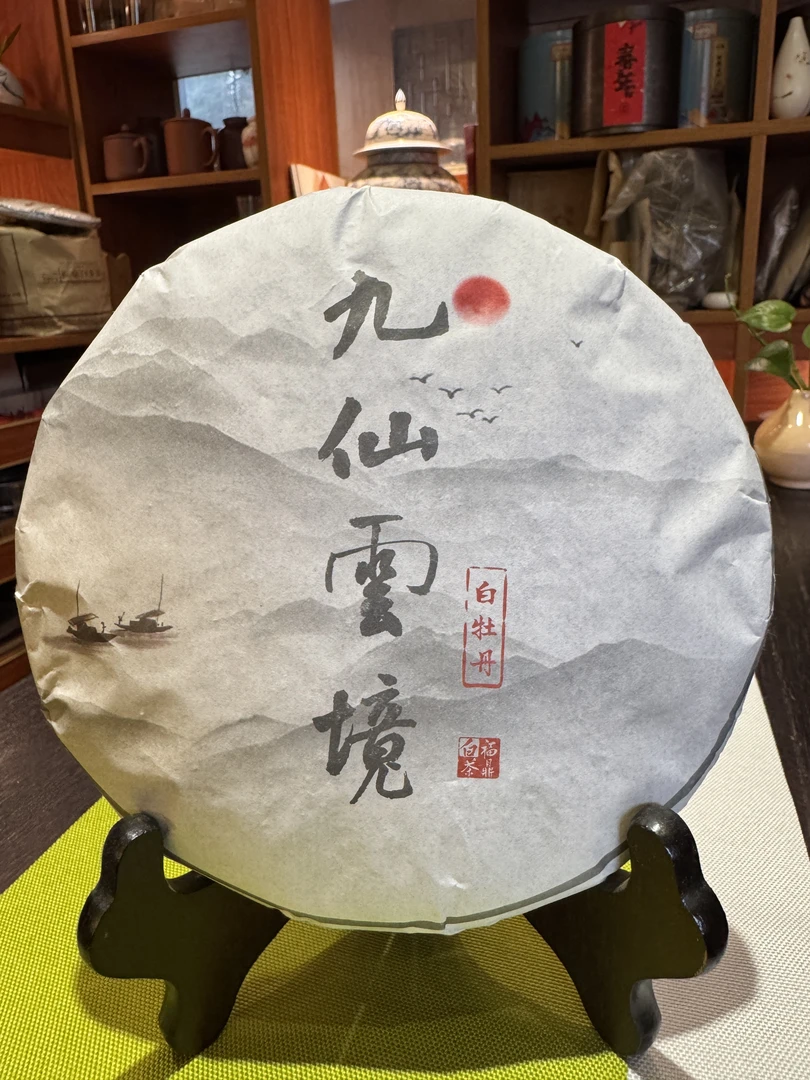 九仙雲境
白牡丹
福鼎
白茶